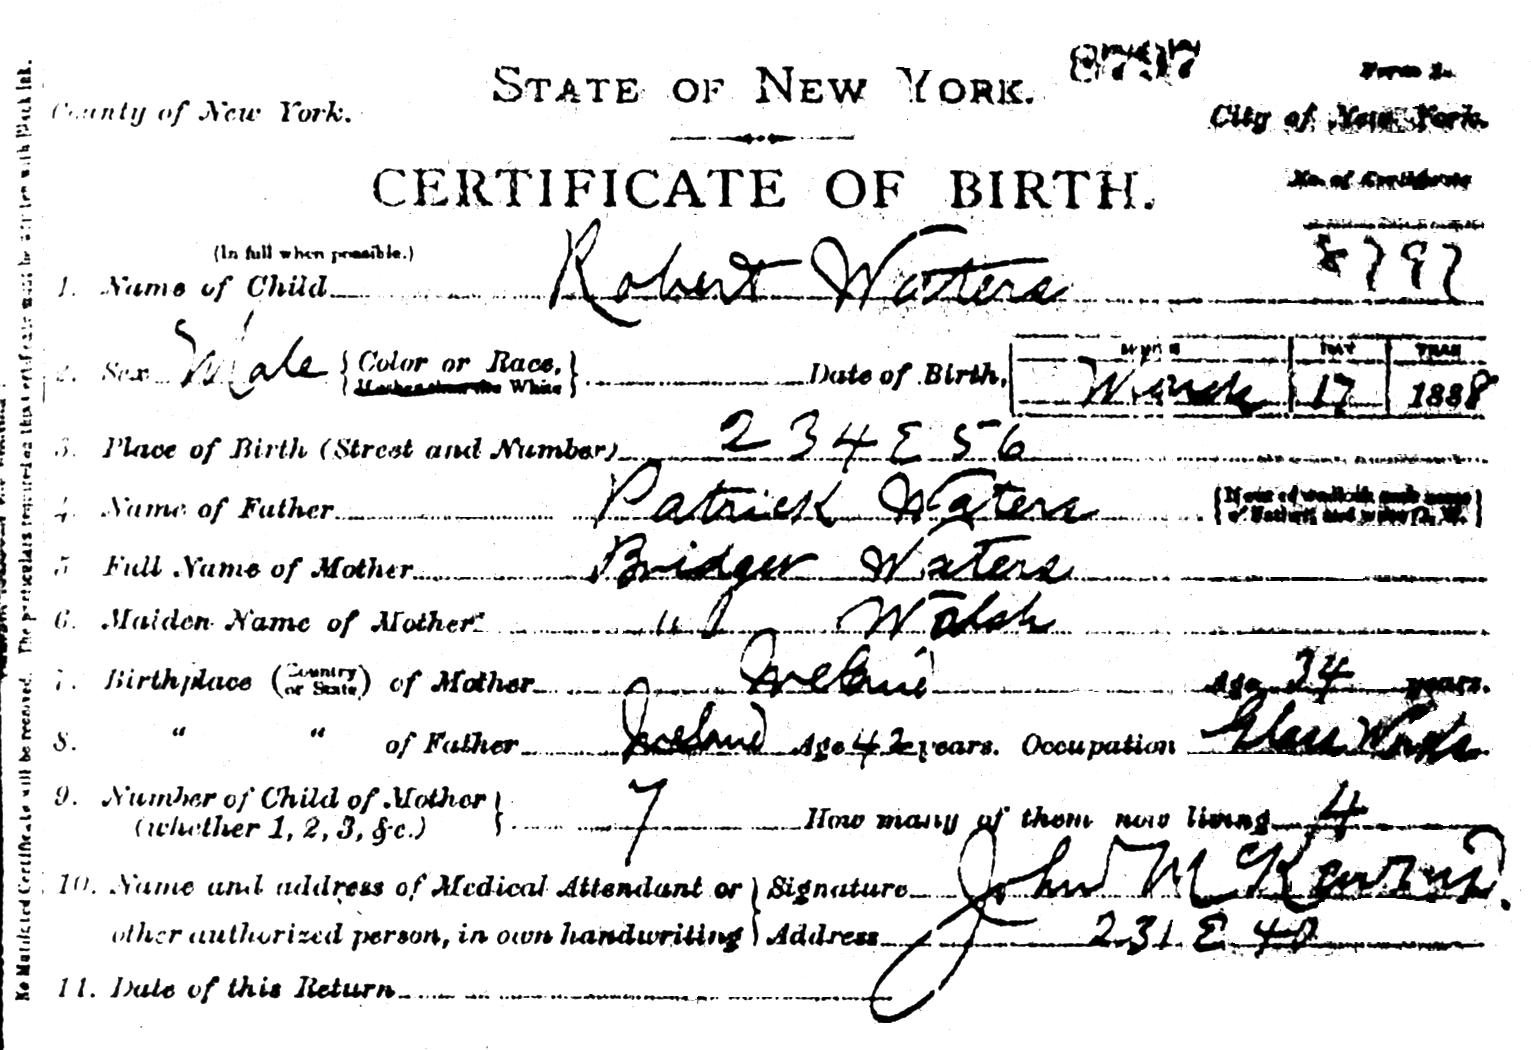 8797
Form 1.
STATE OF NEW YORK.
County of New York.
City of New York.
CERTIFICATE OF BIRTH.
No. of Certificate
8797
(In full when possible.)
1. Name of Child Robert Waters
2. Sex Male {Color or Race, White} Date of Birth, MONTH March DAY 17 YEAR 1888
3. Place of Birth (Street and Number) 234 E 56
4. Name of Father Patrick Waters
of Father, and
5 Full Name of Mother Bridget Waters
6. Maiden Name of Mother " Walsh
7. Birthplace (Country or State) of Mother Ireland Age 34 years.
8. " " of Father Ireland Age 42 years. Occupation Glass Works
9. Number of Child of Mother (whether 1, 2, 3, &c.) 7 How many of them now living 4
10. Name and address of Medical Attendant or } Signature John
other authorized person, in own handwriting } Address 231 E 40
11. Date of this Return
No Mutilated Certificate will be received. The particulars required in this Certificate must be written with Black Ink.